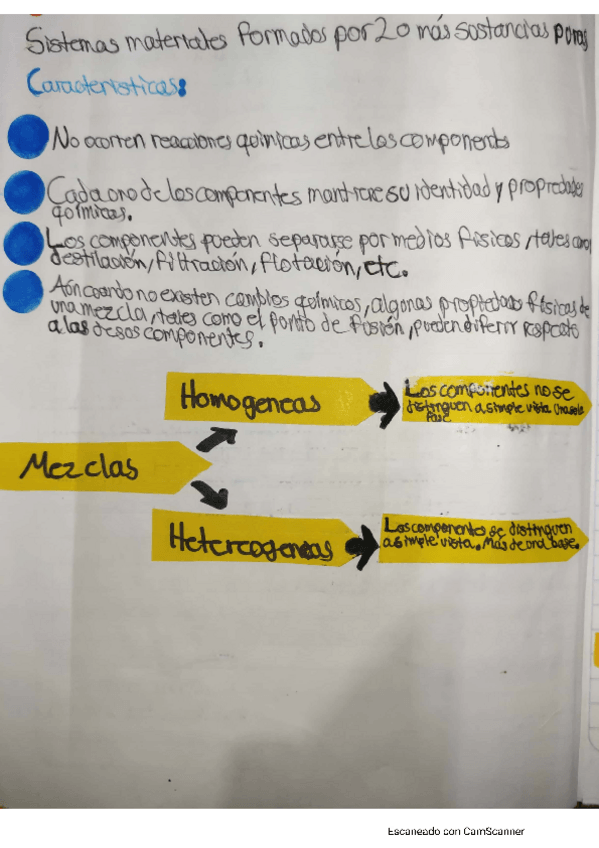 Sistemas materiales formados por 2 o más sustancias puras
Caracteristicas:
No ocurren reacciones quimicas entre los components
Cada uno de los componentes mantiene su identidad y propiedades
químicas.
Los componentes pueden separarse por medios físicos, tales como
destilación, filtración, flotación, etc.
Aún cuando no existen cambios químicos, algunas propiedades físicas de
una mezcla, tales como el punto de fusión, pueden diferir respecto
a las de sus componentes.
Homogeneas
Los componentes no se
distinguen a simple vista. Una sola
fase
Mezclas
Heterogeneas
Los componentes se distinguen
a simple vista. Más de una base.
Escaneado con CamScanner